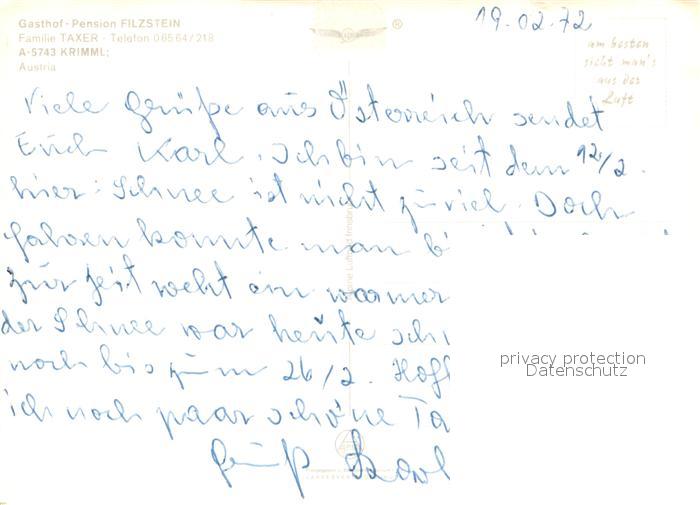 Gasthof - Pension FILZSTEIN
Familie TAXER - Telefon 0 65 64 / 218
A-5743 KRIMML;
Austria
19.02.72
am besten
sieht man's
aus der
Luft
Viele Grüße aus Österreich sendet
Euch Karl. Ich bin seit dem 12/2.
hier. Schnee ist nicht zu viel. Doch
fahren konnte man
zur Zeit weht ein warmer
der Schnee war heute
noch bis zum 26/2.
ich noch paar schöne Ta
Gruß Karl
privacy protection
Datenschutz